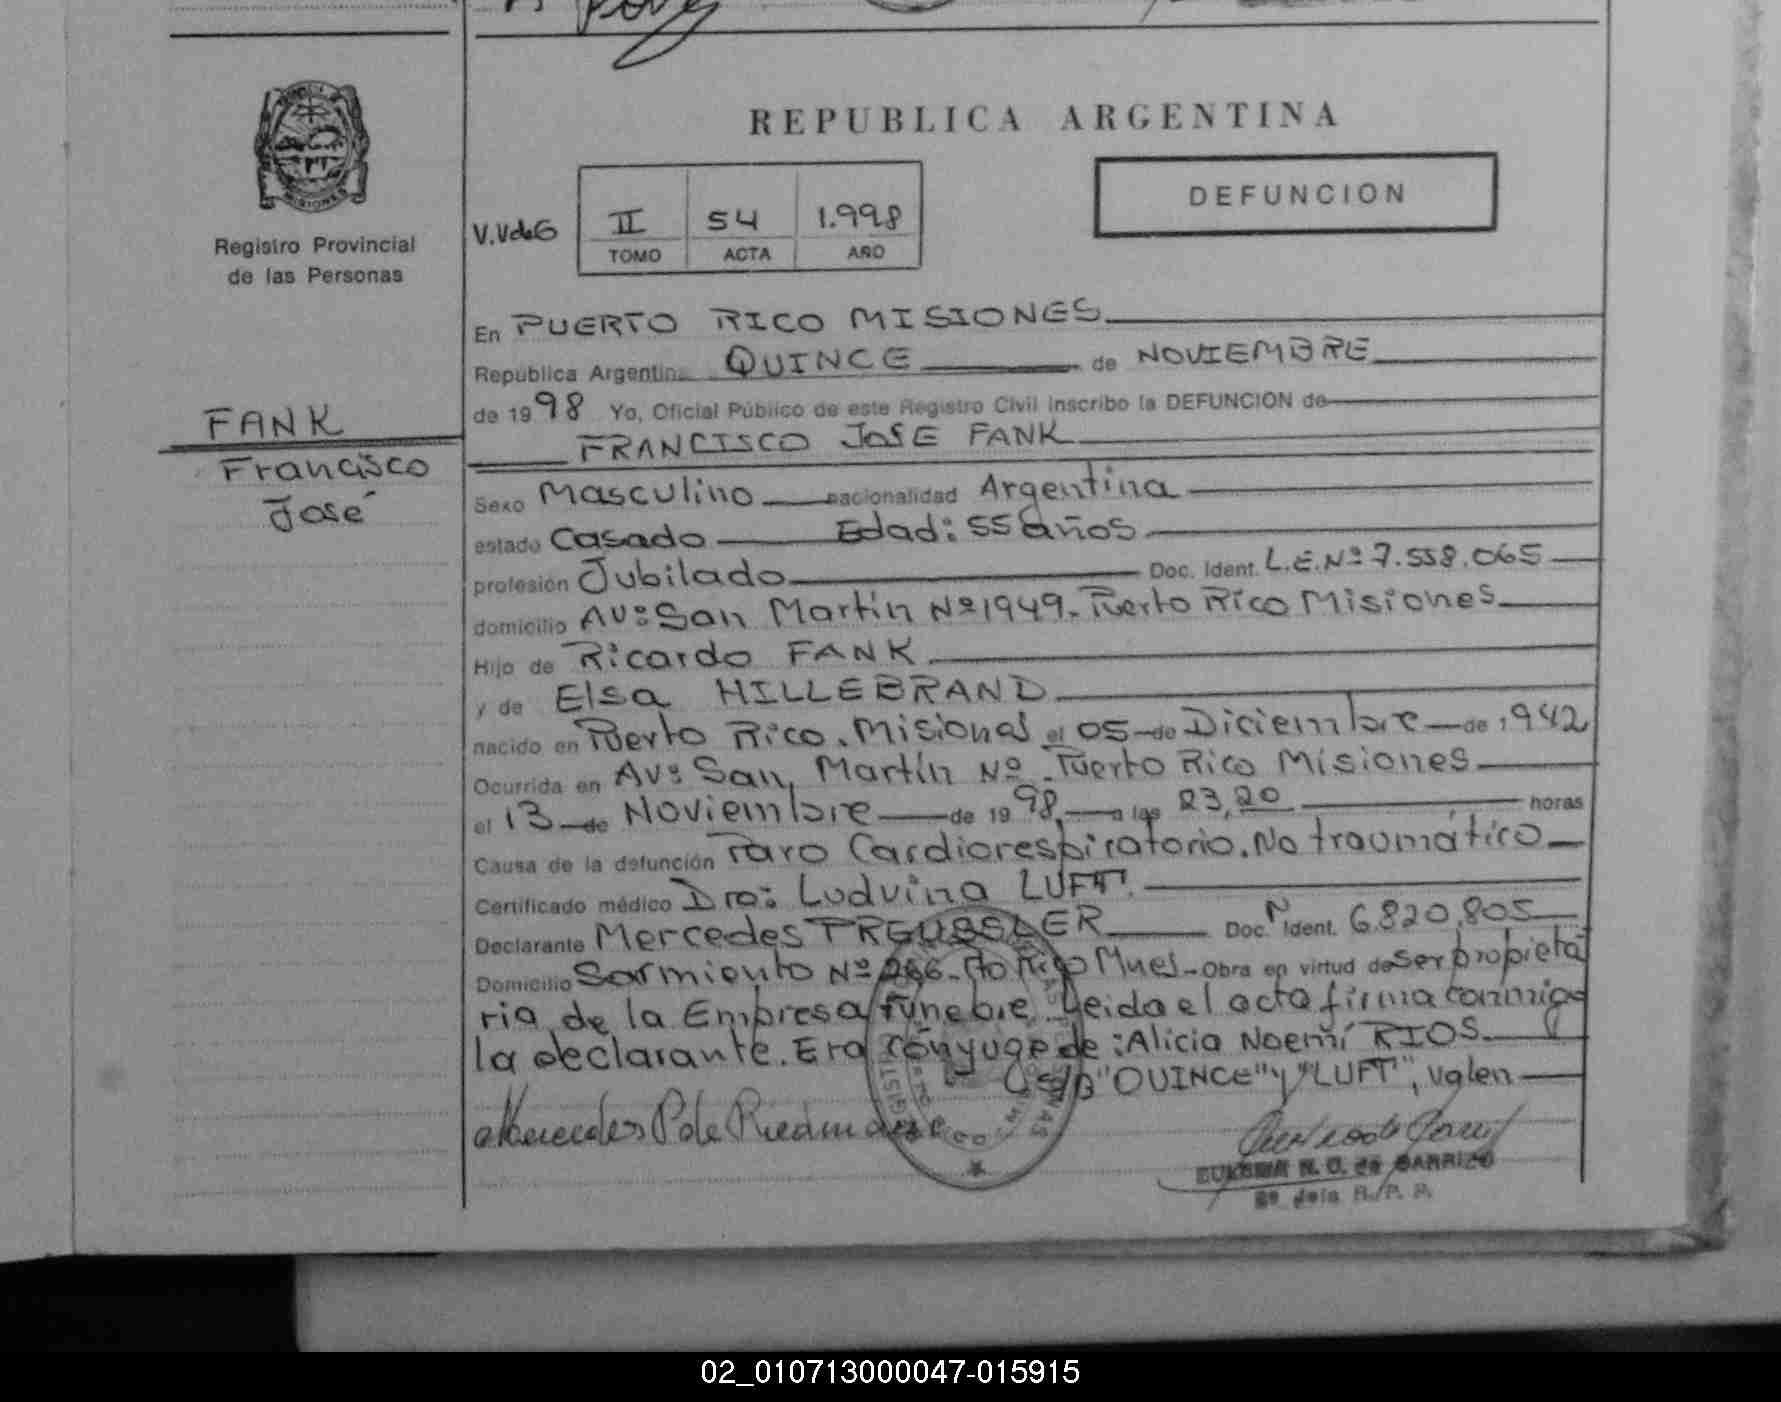 REPUBLICA ARGENTINA
DEFUNCION
MISIONES
Registro Provincial
de las Personas
V.VdeG
II 54 1.998
TOMO ACTA AÑO
FANK
Francisco
José
En PUERTO RICO MISIONES
República Argentina QUINCE de NOVIEMBRE
de 1998 Yo, Oficial Público de este Registro Civil inscribo la DEFUNCION de
FRANCISCO JOSE FANK
Sexo Masculino nacionalidad Argentina
estado Casado Edad: 55 años
profesión Jubilado Doc. Ident. L.E.Nº 7.558.065
domicilio Avº San Martín Nº 1949. Puerto Rico Misiones
Hijo de Ricardo FANK
y de Elsa HILLEBRAND
nacido en Puerto Rico. Misiones el 05 de Diciembre de 1942
Ocurrida en Avº San Martín Nº Puerto Rico Misiones
el 13 de Noviembre de 1998 a las 23,20 horas
Causa de la defunción Paro Cardiorespiratorio. No traumático
Certificado médico Dra: Ludvina LUFT.
Declarante Mercedes PREUSSLER Doc. Ident. 6.820.805
Domicilio Sarmiento Nº 266 - Pto Rico Mnes - Obra en virtud de ser propieta
ria de la Empresa fúnebre. Leida el acta firma conmigo
la declarante. Era cónyuge de: Alicia Noemí RIOS
s/b "QUINCE" y "LUFT", valen
Mercedes P de Riedmaier
N. O. de GARRIZO
Jefa R. P. P.
02_010713000047-015915